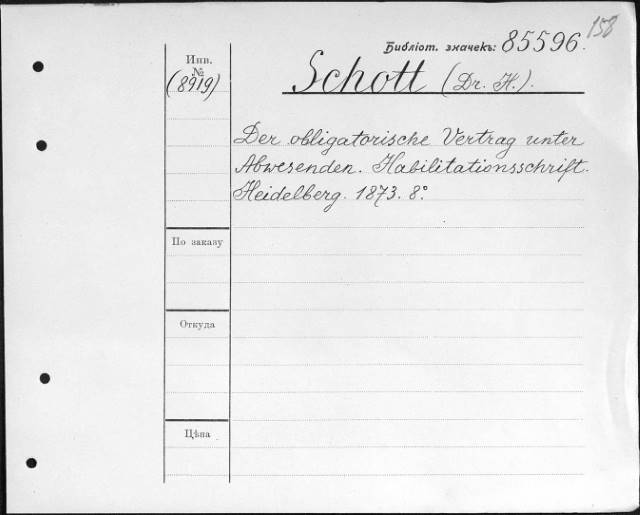 158
Библіот. значекъ: 85596.
Инв.
№
(8919)
Schott (Dr. H.).
Der obligatorische Vertrag unter
Abwesenden. Habilitationsschrift.
Heidelberg. 1873. 8°.
По заказу
Откуда
Цѣна